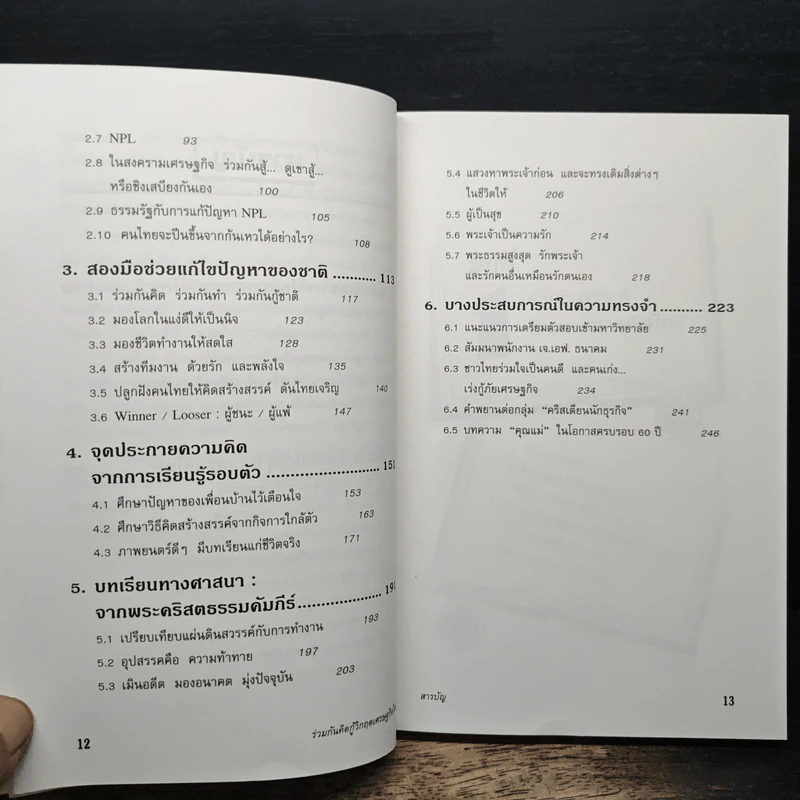 2.7 NPL 93
2.8 ในสงครามเศรษฐกิจ ร่วมกันสู้... ดูเขาสู้...
หรือชิงเสบียงกันเอง 100
2.9 ธรรมรัฐกับการแก้ปัญหา NPL 105
2.10 คนไทยจะปีนขึ้นจากก้นเหวได้อย่างไร? 108
3. สองมือช่วยแก้ไขปัญหาของชาติ ........... 113
3.1 ร่วมกันคิด ร่วมกันทำ ร่วมกันกู้ชาติ 117
3.2 มองโลกในแง่ดีให้เป็นนิจ 123
3.3 มองชีวิตทำงานให้สดใส 128
3.4 สร้างทีมงาน ด้วยรัก และพลังใจ 135
3.5 ปลูกฝังคนไทยให้คิดสร้างสรรค์ ดันไทยเจริญ 140
3.6 Winner / Looser : ผู้ชนะ / ผู้แพ้ 147
4. จุดประกายความคิด
จากการเรียนรู้รอบตัว ............................ 151
4.1 ศึกษาปัญหาของเพื่อนบ้านไว้เตือนใจ 153
4.2 ศึกษาวิธีคิดสร้างสรรค์จากกิจการใกล้ตัว 163
4.3 ภาพยนตร์ดีๆ มีบทเรียนแก่ชีวิตจริง 171
5. บทเรียนทางศาสนา :
จากพระคริสตธรรมคัมภีร์..................... 191
5.1 เปรียบเทียบแผ่นดินสวรรค์กับการทำงาน 193
5.2 อุปสรรคคือ ความท้าทาย 197
5.3 เมินอดีต มองอนาคต มุ่งปัจจุบัน 203
12 ร่วมกันคิดกู้วิกฤตเศรษฐกิจ
5.4 แสวงหาพระเจ้าก่อน และจะทรงเติมสิ่งต่างๆ
ในชีวิตให้ 206
5.5 ผู้เป็นสุข 210
5.6 พระเจ้าเป็นความรัก 214
5.7 พระธรรมสูงสุด รักพระเจ้า
และรักคนอื่นเหมือนรักตนเอง 218
6. บางประสบการณ์ในความทรงจำ .......... 223
6.1 แนะแนวการเตรียมตัวสอบเข้ามหาวิทยาลัย 225
6.2 สัมมนาพนักงาน เจ.เอฟ. ธนาคม 231
6.3 ชาวไทยร่วมใจเป็นคนดี และคนเก่ง...
เร่งกู้ภัยเศรษฐกิจ 234
6.4 คำพยานต่อกลุ่ม “คริสเตียนนักธุรกิจ” 241
6.5 บทความ “คุณแม่” ในโอกาสครบรอบ 60 ปี 246
สารบัญ 13